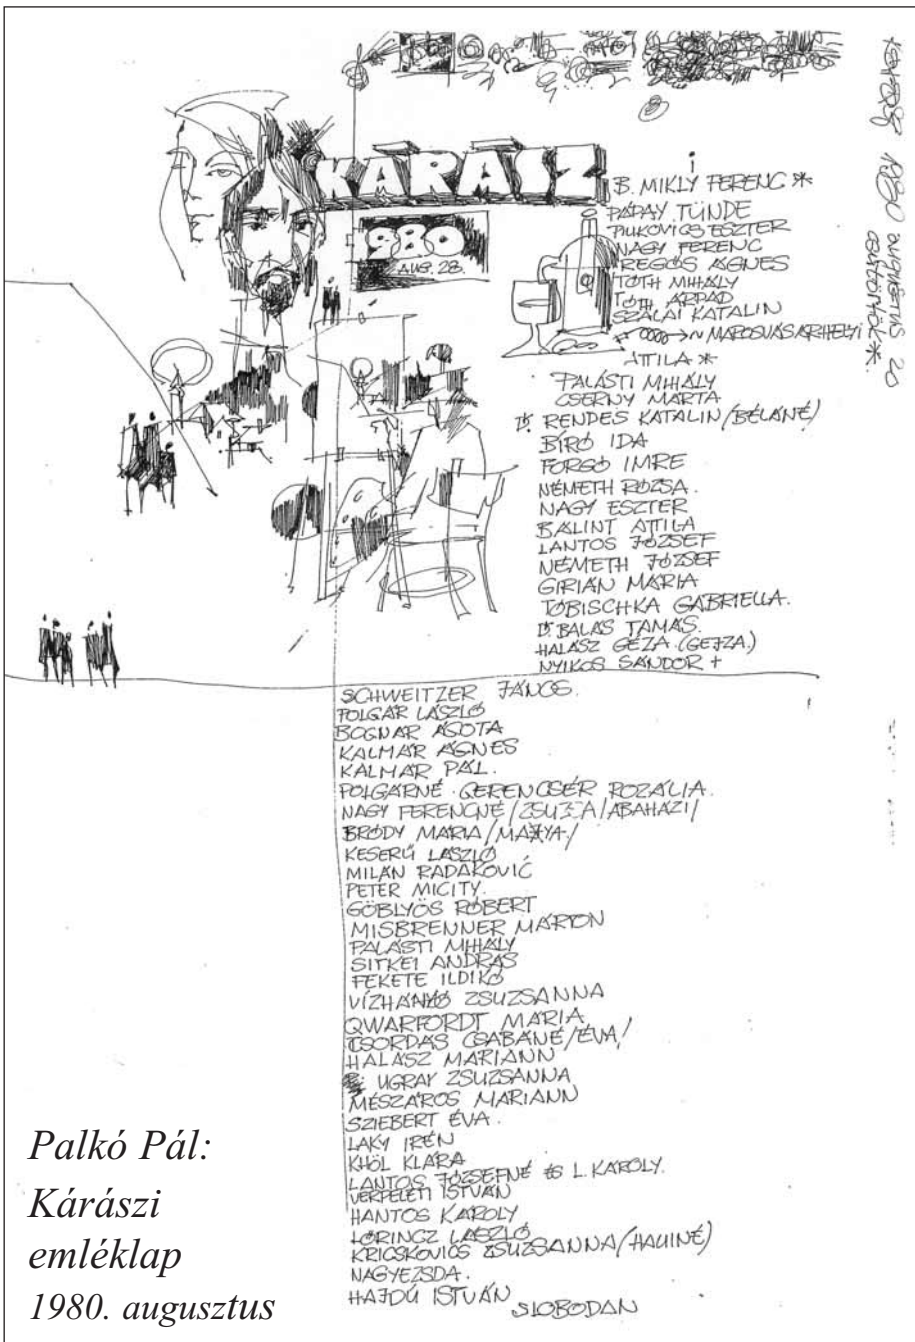 KÁRÁSZ
980
AUG. 28.
1980 AUGUSZTUS 20
CSÜTÖRTÖK*.
B. MIKLY FERENC *
PÁPAY TÜNDE
PUKOVICS ESZTER
NAGY FERENC
REGŐS ÁGNES
TÓTH MIHÁLY
TÓTH ÁRPÁD
SZALAI KATALIN
MAROSVÁSÁRHELYI
ATTILA *
PALÁSTI MIHÁLY
CSERNY MÁRTA
D. RENDES KATALIN (BÉLÁNÉ)
BÍRÓ IDA
FORGÓ IMRE
NÉMETH RÓZSA.
NAGY ESZTER
BÁLINT ATTILA
LANTOS JÓZSEF
NÉMETH JÓZSEF
GIRIÁN MÁRIA
TOBISCHKA GABRIELLA.
D. BALÁS TAMÁS.
HALÁSZ GÉZA. (GEJZA.)
NYIKOS SÁNDOR +
SCHWEITZER JÁNOS.
POLGÁR LÁSZLÓ
BOGNÁR ÁGOTA
KALMÁR ÁGNES
KALMÁR PÁL.
POLGÁRNÉ GERENCSÉR ROZÁLIA.
NAGY FERENCNÉ /ZSUZSA/ABAHÁZI/
BRÓDY MÁRIA /MÁJYA/
KESERŰ LÁSZLÓ
MILÁN RADAKOVIĆ
PETER MICITY.
GÖBLYÖS RÓBERT
MISBRENNER MÁRTON
PALÁSTI MIHÁLY
SITKEI ANDRÁS
FEKETE ILDIKÓ
VÍZHÁNYÓ ZSUZSANNA
QWARFORDT MÁRIA
CSORDÁS CSABÁNÉ/ÉVA/
HALÁSZ MARIANN
UGRAY ZSUZSANNA
MÉSZÁROS MARIANN
SZIEBERT ÉVA.
LAKY IRÉN
KHÖL KLÁRA
LANTOS JÓZSEFNÉ ÉS L. KÁROLY.
VERPELÉTI ISTVÁN
HANTOS KÁROLY
LŐRINCZ LÁSZLÓ
KRICSKOVICS ZSUZSANNA (HAUINÉ)
NAGYEZSDA.
HAJDÚ ISTVÁN
SLOBODAN
Palkó Pál:
Kárászi
emléklap
1980. augusztus